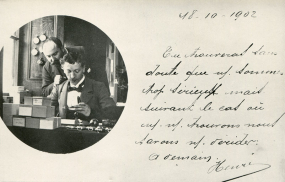 18 - 10 - 1902
Tu trouveras sans
doute que ns. sommes
trop sérieux mais
suivant le cas où
ns. ns. trouvons nous
savons ns. dérider.
A demain.
Henri